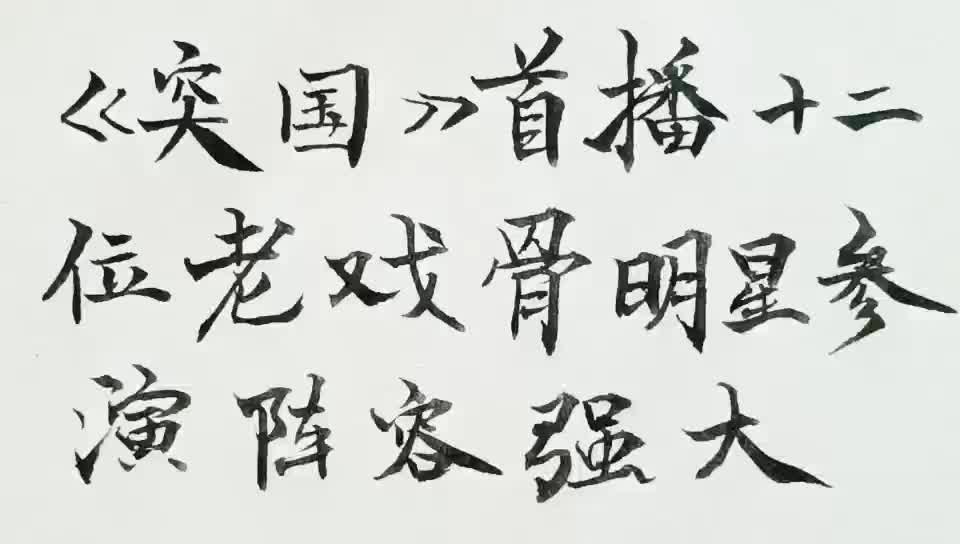 《突国》首播十二
位老戏骨明星参
演阵容强大